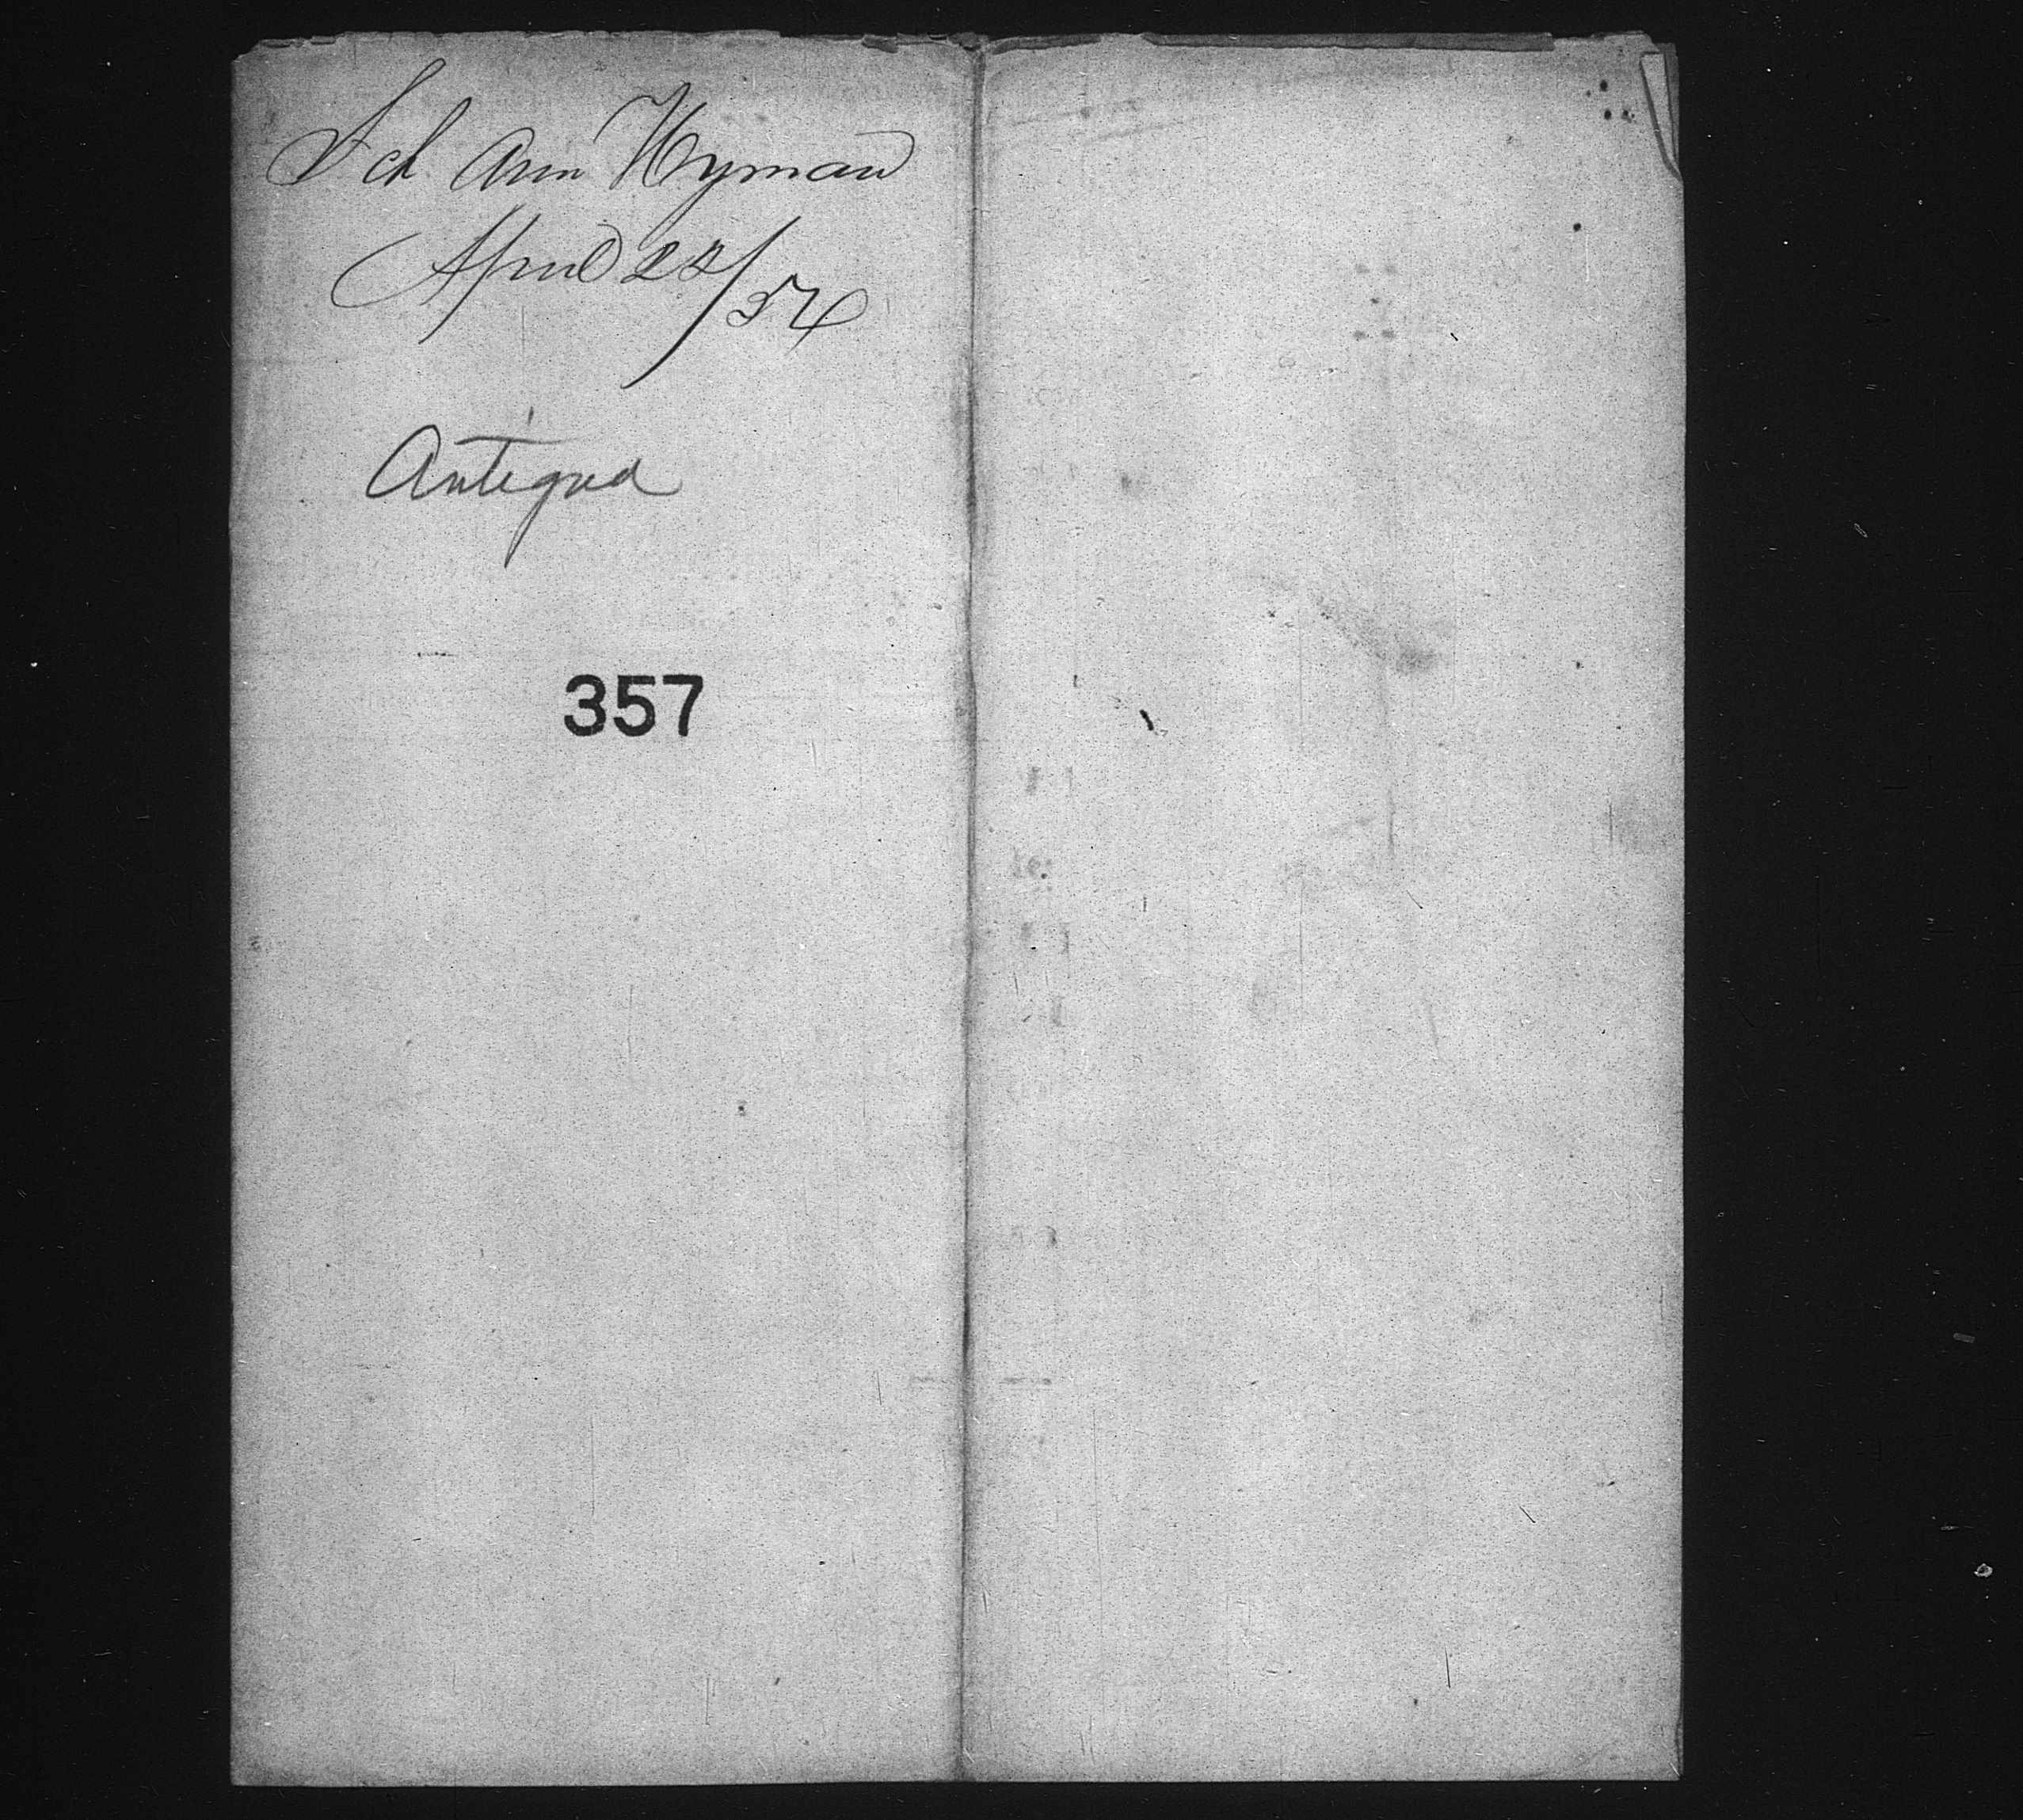 Sch Ann Hyman
April 22/54
Antigua
357